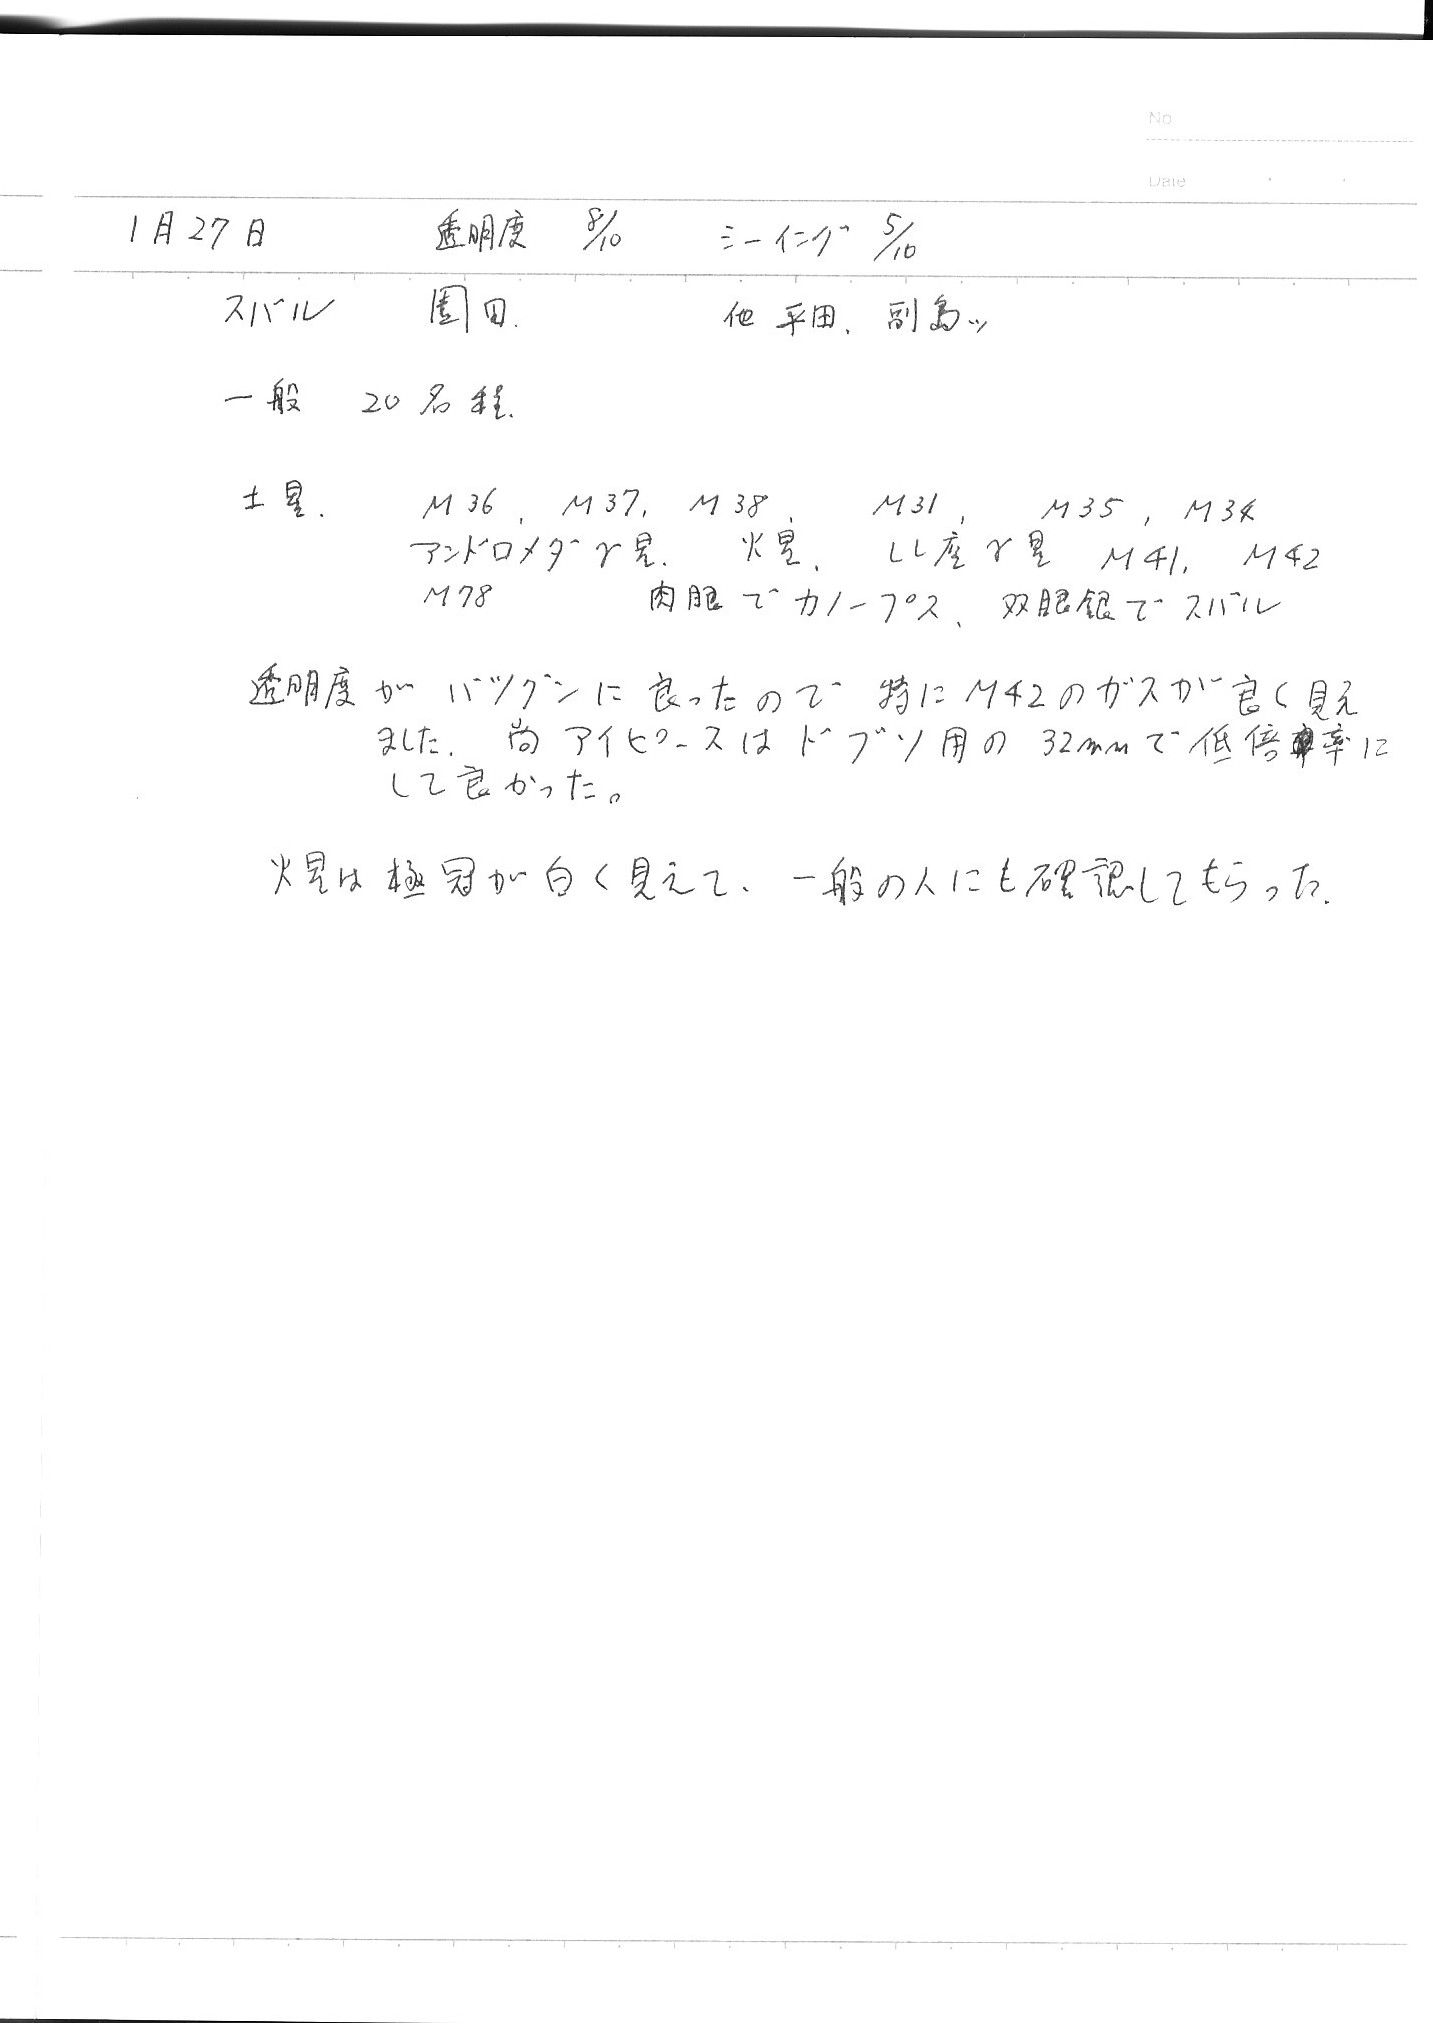 No
Date
1月27日 透明度 8/10 シーイング 5/10
スバル 園田. 他 平田、副島ッ
一般 20名程.
土星. M36, M37, M38, M31, M35, M34
アンドロメダγ星. 火星. しし座γ星 M41, M42
M78 肉眼でカノープス、双眼銀でスバル
透明度が バツグンに良ったので 特にM42のガスが良く見え
ました. 尚アイピースはドブソ用の 32mmで低倍率に
して良かった。
火星は極冠が白く見えて、一般の人にも確認してもらった.